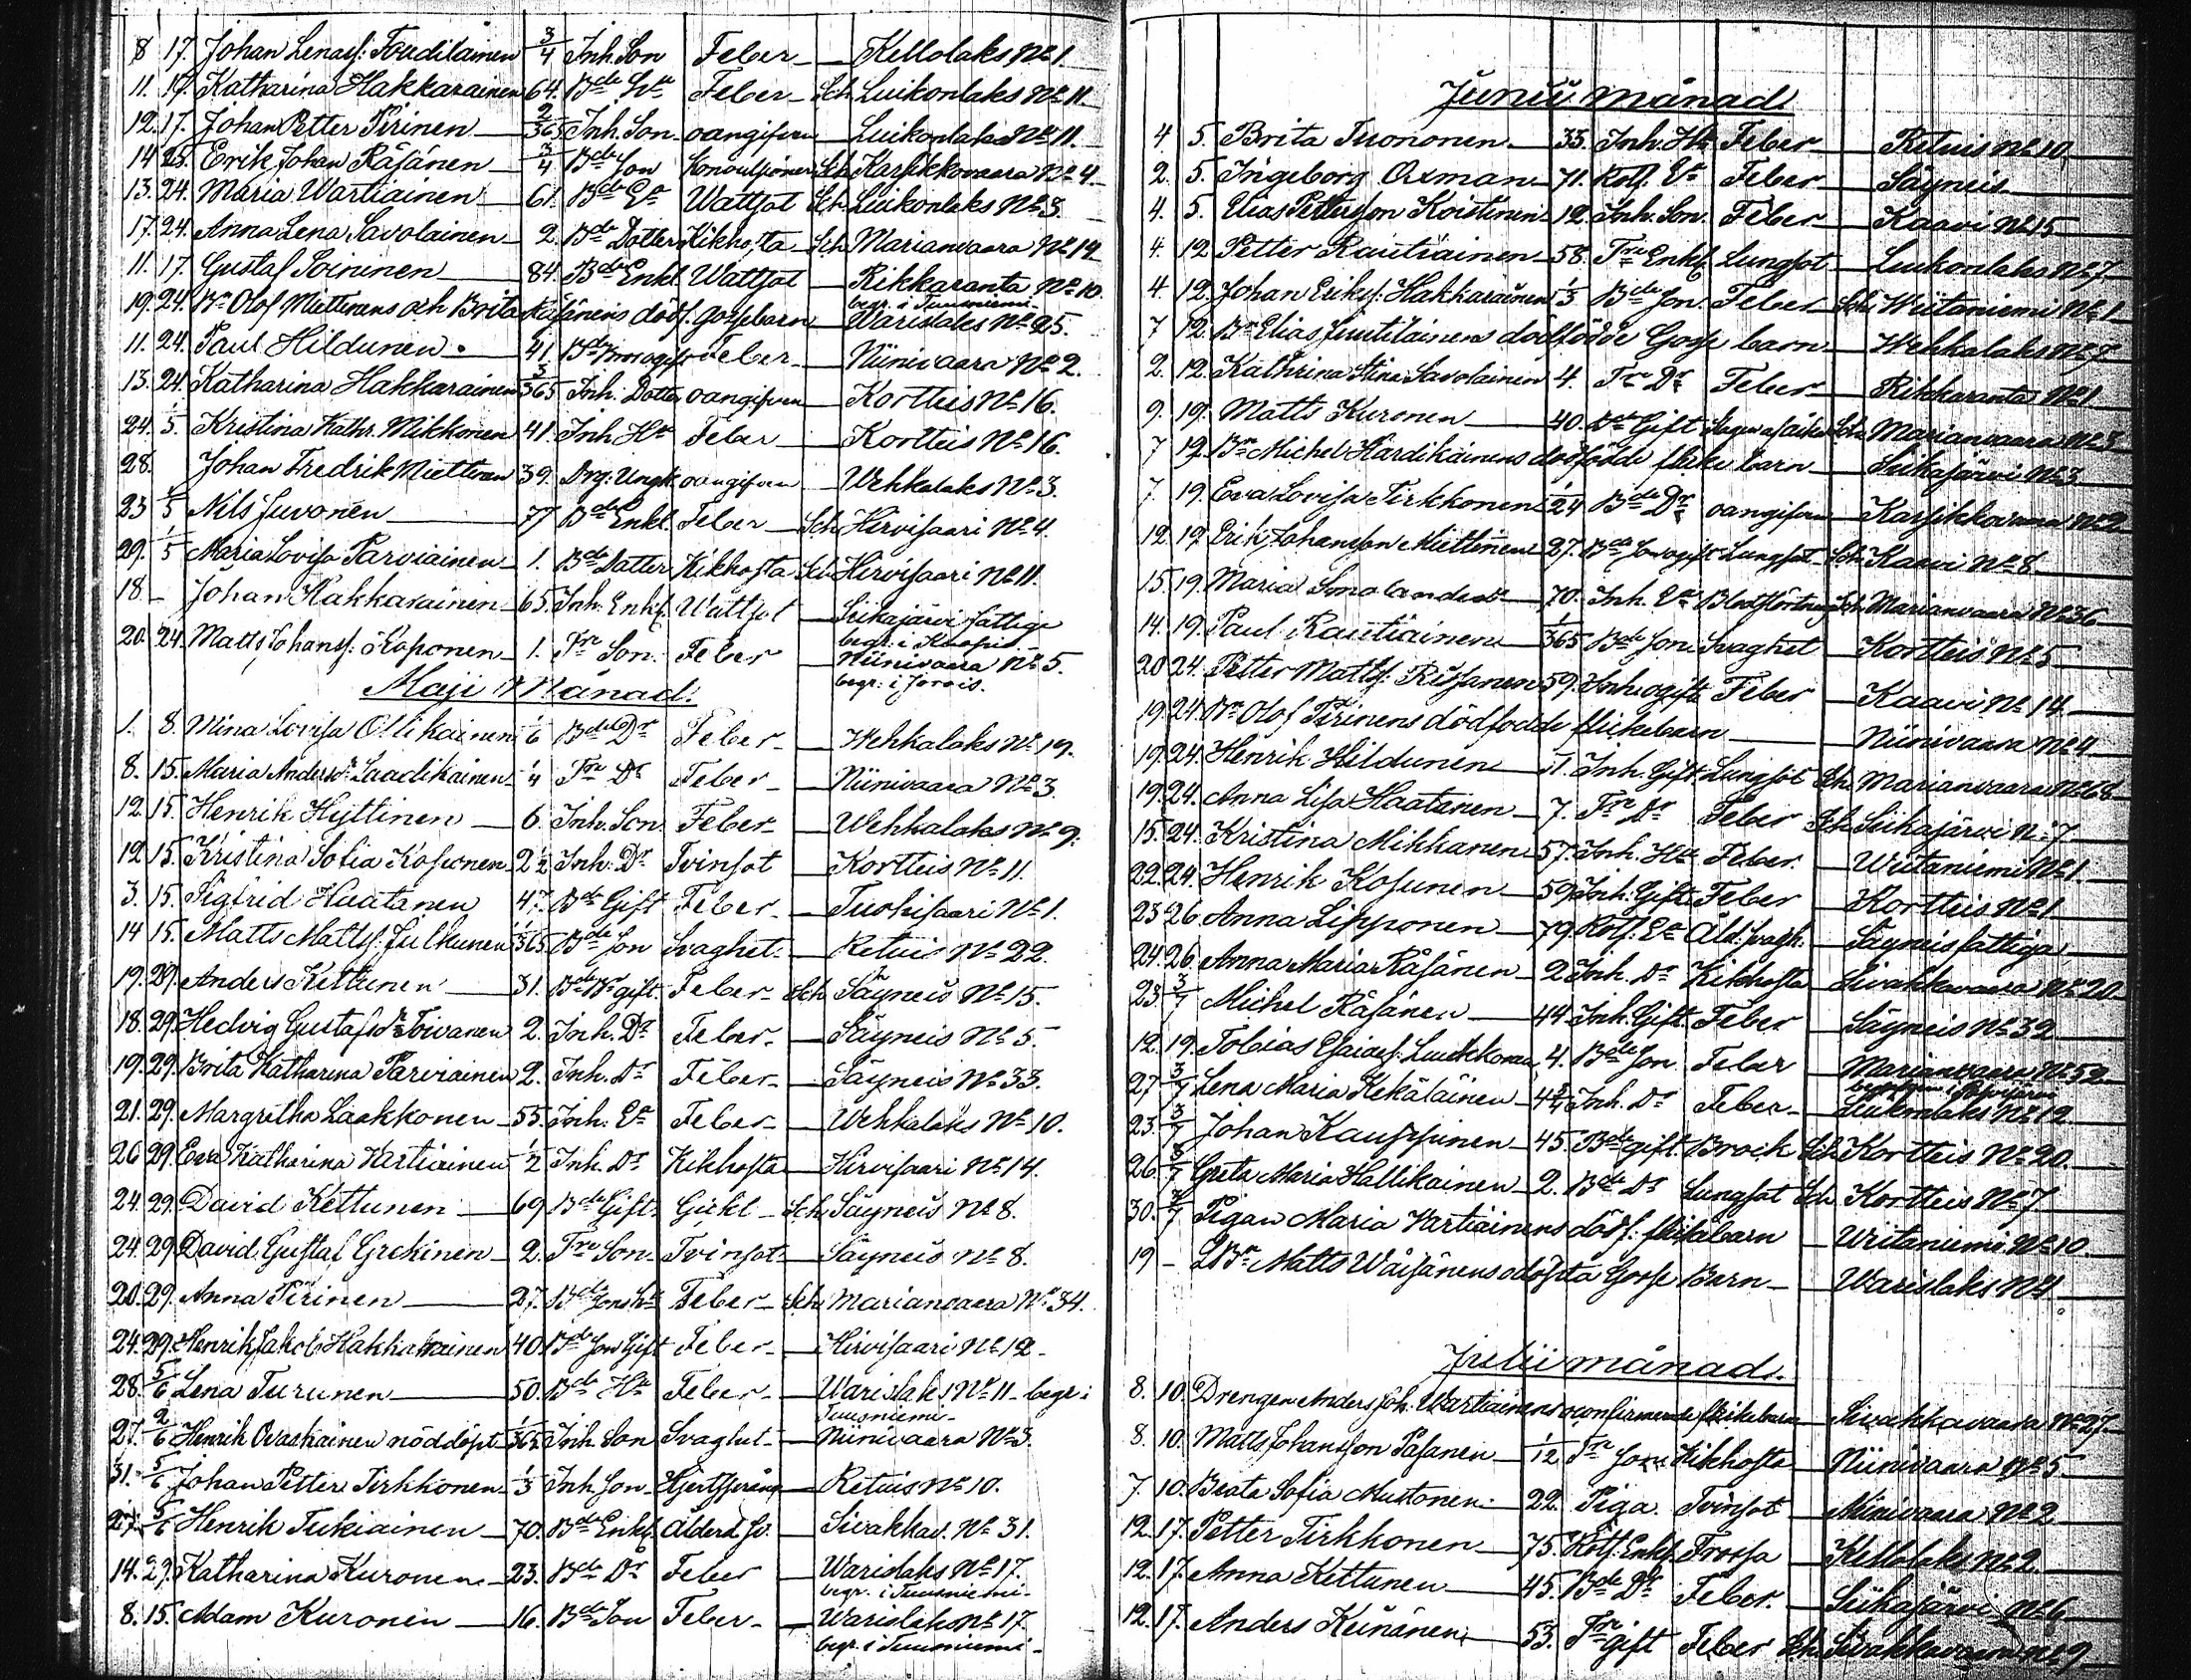 8 17. Johan Lenasf: Toudilainen 3/4 Inh. Son Feber Kellolaks No 1.
11. 17. Katharina Hakkarainen 64. Bde Hu Feber Sch. Luikonlaks No 11.
12. 17. Johan Petter Pirinen 2/365 Inh. Son oangifven Luikonlaks No 11.
14 25. Erik Johan Räsänen 3/4 Bde Son Convulsioner Sch. Karsikkovaara No 4.
13. 24. Maria Wartiainen 61. Bde Ea Wattsot Sch. Luikonlaks No 3.
17. 24. Anna Lena Savolainen 2. Bde Dotter Kikhosta Sch. Marianvaara No 14.
11. 17. Gustaf Soininen 84. Bde Enkl. Wattsot Rikkaranta No 10.
begr. i Tuusniemi.
19. 24. Bn Olof Miettinens och Brita Räsänens dödf. gossebarn Warislaks No 25.
11. 24. Paul Hildunen. 41. Bde Bror ogift Feber Niinivaara No 2.
13. 24. Katharina Hakkarainen 3/365 Inh. Dotter oangifven Kortteis No 16.
24. 1/5. Kristina Kathr. Mikkonen 41. Inh. Hu Feber Kortteis No 16.
28. Johan Fredrik Miettinen 39. Drg. Ungk. oangifven Wehkalaks No 3.
23 1/5 Nils Juvonen 77 Bde Enkl. Feber Sch. Hirvisaari No 4.
29. 1/5 Maria Lovisa Parviainen 1. Bde Dotter Kikhosta Sch. Hirvisaari No 11.
18 Johan Hakkarainen 65. Inh. Enkl. Wattsot Siikajärvi fattige
begr. i Kuopio.
20. 24. Matts Johansf: Koponen 1. Trp Son. Feber Niinivaara No 5.
begr. i Jorois.
Maji Månad.
1. 8. Mina Lovisa Ollikainen 1/6 Bde Dr Feber Wehkalaks No 19.
8. 15. Maria Andersdr Laadikainen 1/4 Trp Dr Feber Niinivaara No 3.
12. 15. Henrik Hyttinen 6. Inh. Son. Feber Wehkalaks No 9.
12 15. Kristina Sofia Kosunen 2 1/2 Inh. Dr Tvinsot Kortteis No 11.
3. 15. Sigfrid Haatanen 47. Bde Gift Feber Tuohisaari No 1.
14 15. Matts Mattsf. Julkunen 1/365 Bde Son Svaghet Retuis No 22.
19. 29. Anders Kettunen 31. Bde Br gift. Feber Sch Säyneis No 15.
18. 29. Hedvig Gustafsdr Toivanen 2. Inh. Dr Feber Säyneis No 5.
19. 29. Brita Katharina Parviainen 2. Inh. Dr Feber Säyneis No 33.
21. 29. Margretha Laakkonen 55. Inh. Ea Feber Wehkalaks No 10.
26 29. Eva Katharina Hertiainen 1/2 Inh. Dr Kikhosta Hirvisaari No 14.
24. 29. David Kettunen 69 Bde Gift. Gickt Sch Säyneis No 8.
24. 29 David Gustaf Grekinen 2. Trp Son Tvinsot Säyneis No 8.
20. 29. Anna Pirinen 27. Bde Sons Hu Feber Sch Marianvaara No 34.
24. 29. Henrik Jakob Hakkarainen 40. Bde Son Gift Feber Hirvisaari No 12
28. 5/6 Lena Turunen 50. Bde Hu Feber Warislaks No 11 begr. i
Tuusniemi
27. 2/6 Henrik Ovaskainen nöddöpt 1/365 Inh. Son Svaghet Niinivaara No 3.
31. 5/6 Johan Petter Tirkkonen 1/3 Inh. Son Hjertspräng Retuis No 10.
27. 5/6 Henrik Tukiainen 70. Bde Enkl. Ålderd. Sv. Sivakkav. No 31.
14. 29. Katharina Kuronen 23. Bde Dr Feber Warislaks No 17.
begr. i Tuusniemi.
8. 15. Adam Kuronen 16. Bde Son Feber Warislaks No 17.
begr. i Tuusniemi
Junii månad
4 5. Brita Tuononen 33. Inh. Hu Feber Retuis No 10.
2. 5. Ingeborg Axman 71. Rotf. Ea Feber Säyneis
4. 5. Elias Petterson Koistinen 12. Inh. Son. Feber Kaavi No 15
4. 12 Petter Rautiainen 58. Trp Enkl. Lungsot Luikonlaks No 7.
4. 12. Johan Eriksf: Hakkarainen 1/3 Bde Son. Feber Sch. Wiitaniemi No 1
7 12. Bn Elias Juutilainens dödfödde Gosse barn Wehkalaks No 7
2. 12. Kathrina Stina Savolainen 4. Trp Dr Feber Rikkaranta No 1
9. 19. Matts Kuronen 40. Bde Gift Sch. Marianvaara No 3
7 19. Bn Michel Hardikainens dödfödde flicke barn Siikajärvi No 3
7. 19. Eva Lovisa Tirkkonen 1/24 Bde Dr oangifven Karsikkovaara No 2
12. 19. Erik Johansson Miettinen 27. Bde Son ogift Lungsot Sch. Kaavi No 8.
15. 19. Maria 70. Inh. Ea Blodstörtning Sch. Marianvaara No 36
14. 19. Paul Rautiainen 1/365 Bde Son Svaghet Kortteis No 5
20 24. Petter Mattsf. Rissanen 59. Inh. ogift Feber Kaavi No 14
19. 24. Bn Olof Pirinens dödfödde flickebarn Niinivaara No 4
19. 24. Henrik Hildunen 71. Inh. Gift. Lungsot Sch. Marianvaara No 68
19. 24. Anna Lisa Haatanen 7. Trp Dr Feber Sch. Siikajärvi No 7
15. 24. Kristina Mikkanen 57. Inh. Hu Feber. Wiitaniemi No 1.
22. 24. Henrik Kosunen 59. Inh. Gift Feber Kortteis No 1
23 26. Anna Lipponen 79. Rotf. Ea Åld: svagh. Säyneis fattiga
24. 26. Anna Maria Räsänen 2 Inh. Dr Kikhosta Sivakkavaara No 20
23. 3/7 Michel Räsänen 44. Inh. Gift. Feber Säyneis No 32
12. 19. Tobias Esaiasf. Luukkonen 4. Bde Son Feber Marianvaara No 52
27 3/7 Lena Maria Kekäläinen 4 3/4 Inh. Dr Feber Luikonlaks No 12
23. 3/7 Johan Kauppinen 45. Bde gift. Brock Sch. Kortteis No 20.
26. 3/7 Greta Maria Hallikainen 2. Bde Dr Lungsot Sch. Kortteis No 7
30. 3/7 Pigan Maria Vartiainens dödf: flickabarn Wiitaniemi No 10.
19 LBn Matts Wäisänens odöpta Gosse Barn Warislaks No 4
Julii månad.
8. 10. Drengen Anders Joh. Wartiainens oconfirmerade flickebarn Sivakkavaara No 27
8. 10. Matts Johansson Räsänen 1/12 Trp Son Kikhosta Niinivaara No 5.
7. 10. Beata Sofia Mustonen 22. Piga. Tvinsot Niinivaara No 2
12. 17. Petter Tirkkonen 75. Rotf. Enkl. Frossa Kellolaks No 2.
12. 17. Anna Kettunen 45. Bde Dr Feber. Siikajärvi No 6
12. 17. Anders Keinänen 53. Trp gift Feber Sch. Sivakkavaara No 9